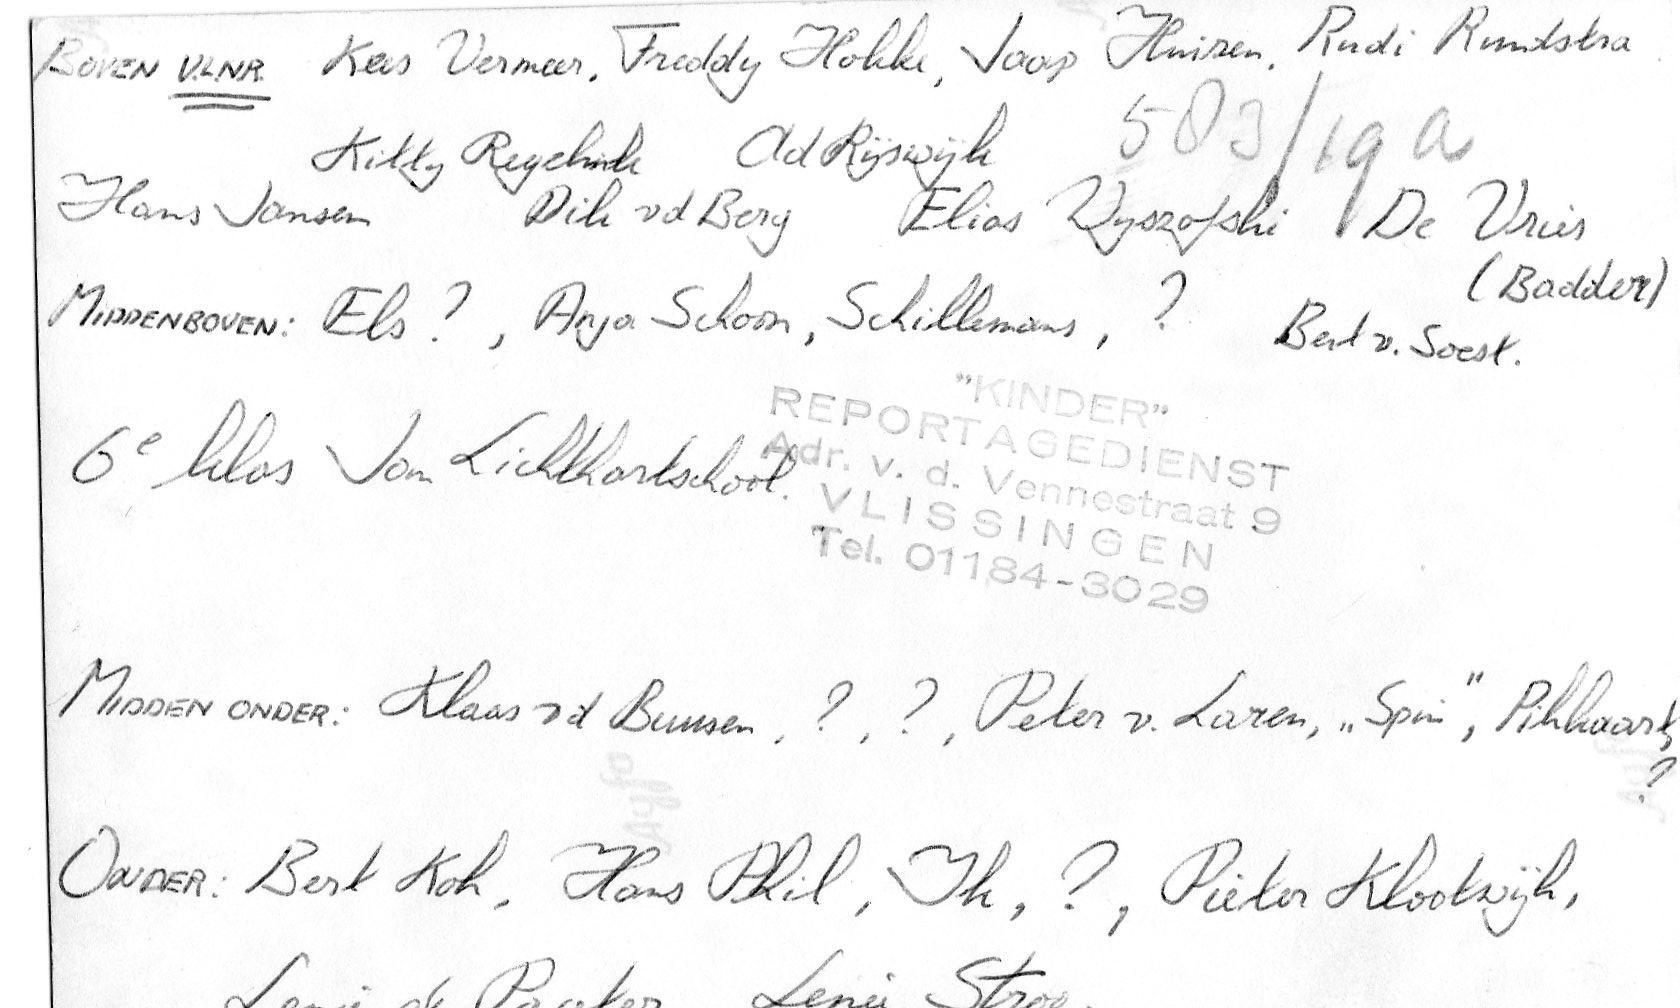 BOVEN V.L.N.R. Kees Vermeer, Freddy Hokke, Jaap Huizen, Rudi Rundstra
Kitty Regelink Ad Rijswijk 583/19a
Hans Jansen Dik vd Berg Elias De Vries
(Badder)
MIDDENBOVEN: Els ?, Anja Schoon, Schillemans, ? Bert v. Soest.
6e klas Jan Lichthartschool.
"KINDER"
REPORTAGEDIENST
Adr. v. d. Vennestraat 9
VLISSINGEN
Tel. 01184-3029
MIDDEN ONDER: Klaas vd Bunsen, ?, ?, Peter v. Laren, „Spin", Pikkaart,
?
ONDER: Bert Kok, Hans Phil, Ik, ?, Pieter Klootwijk,
Lenie de Pagter Lenie Stroo